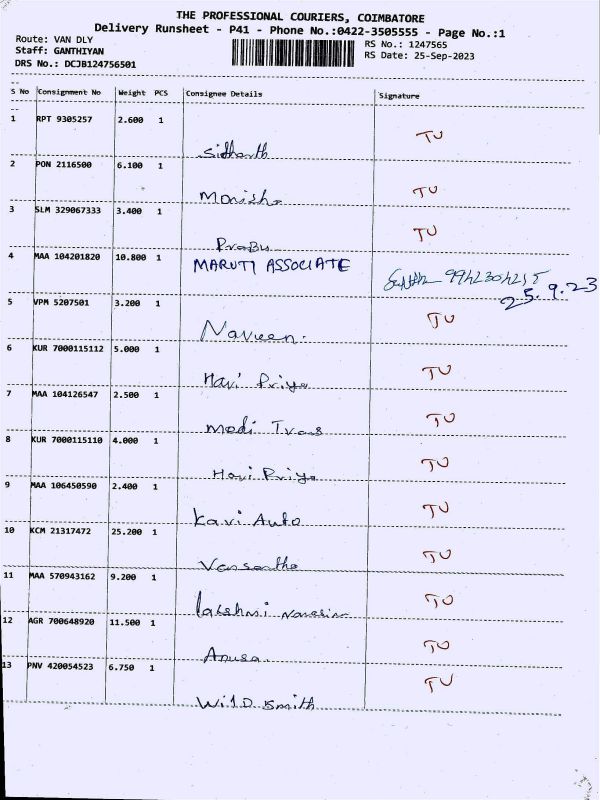 THE PROFESSIONAL COURIERS, COIMBATORE
Delivery Runsheet - P41 - Phone No.:0422-3505555 - Page No.:1
Route: VAN DLY
Staff: GANTHIYAN
DRS No.: DCJB124756501
RS No.: 1247565
RS Date: 25-Sep-2023
S No Consignment No Weight PCS Consignee Details Signature
1 RPT 9305257 2.600 1
Sidharth TU
2 PON 2116500 6.100 1
Monisha TU
3 SLM 329067333 3.400 1
Prabu TU
4 MAA 104201820 10.800 1
MARUTI ASSOCIATE 9942304215
25.9.23
5 VPM 5207501 3.200 1
Naveen. TU
6 KUR 7000115112 5.000 1
Hari Priya TU
7 MAA 104126547 2.500 1
Modi Trans TU
8 KUR 7000115110 4.000 1
Hari Priya TU
9 MAA 106450590 2.400 1
Kavi Auto TU
10 KCM 21317472 25.200 1
Vassantha TU
11 MAA 570943162 9.200 1
Lakshmi TU
12 AGR 700648920 11.500 1
Anusa. TU
13 PNV 420054523 6.750 1
Wild Smith TU